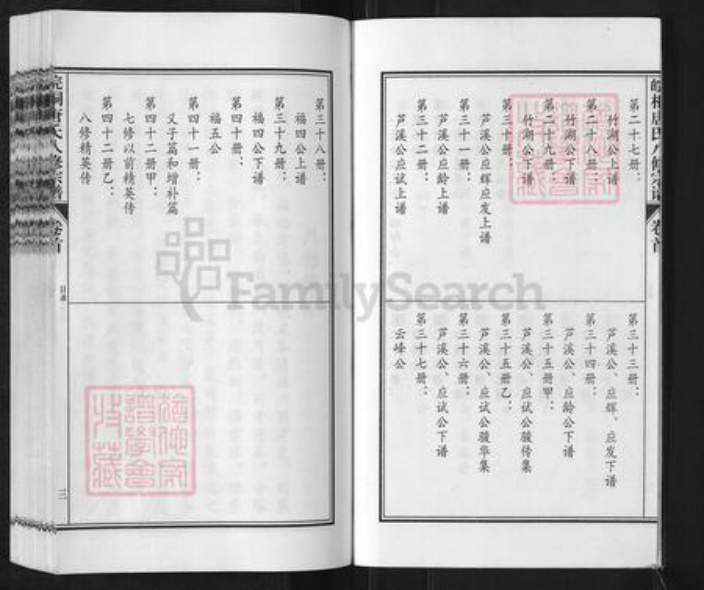 第二十七册：
竹湖公上谱
第二十八册：
竹湖公下谱
第二十九册：
竹湖公下谱
第三十册：
芦溪公应辉应发上谱
第三十一册：
芦溪公应龄上谱
第三十二册：
芦溪公应试上谱
第三十三册：
芦溪公、应辉、应发下谱
第三十四册：
芦溪公、应龄公下谱
第三十五册甲：
芦溪公、应试公骏传集
第三十五册乙：
芦溪公、应试公骏华集
第三十六册：
芦溪公、应试公下谱
第三十七册：
云峰公
卷首
第三十八册：
福四公上谱
第三十九册：
福四公下谱
第四十册：
福五公
第四十一册：
父子篇和增补篇
第四十二册甲：
七修以前精英传
第四十二册乙：
八修精英传
皖桐唐氏八修宗谱
卷首
目录
三
FamilySearch